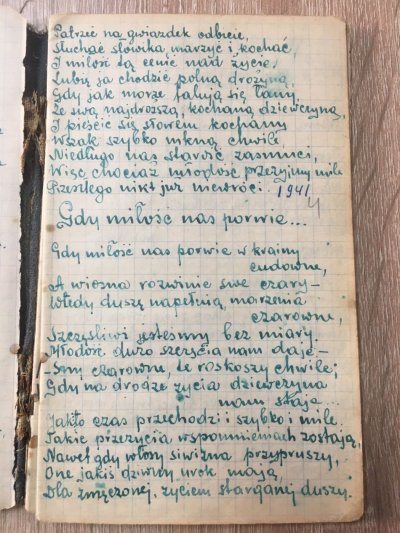 Patrzeć na gwiazdek odbicie,
Słuchać słowika, marzyć i kochać,
I miłość tą cenić nad życie.
Lubię ja chodzić polną drożyną,
Gdy jak morze falują się łany
Ze swą najdroższą, kochaną dziewczyną,
I pieścić się słowem kochany
Wszak szybko mkną chwile,
Niedługo nas starość zasmuci,
Więc chociaż młodość przeżyjmy mile
Przeszłego nikt już nie wróci. 1941
Gdy miłość nas porwie...
Gdy miłość nas porwie w krainy
cudowne,
A wiosna rozwinie swe czary—
Wtedy duszę napełnią marzenia
czarowne,
Szczęśliwi jesteśmy bez miary.
Młodość dużo szczęścia nam daje—
Sny czarowne, te roskoszy chwile;
Gdy na drodze życia dziewczyna
nam staje...
Jakto czas przechodzi i szybko i mile
Takie przeżycia wspomnieniach zostają,
Nawet gdy włosy siwizna przypruszy,
One jakiś dziwny urok mają,
Dla zmęczonej, życiem starganej duszy.